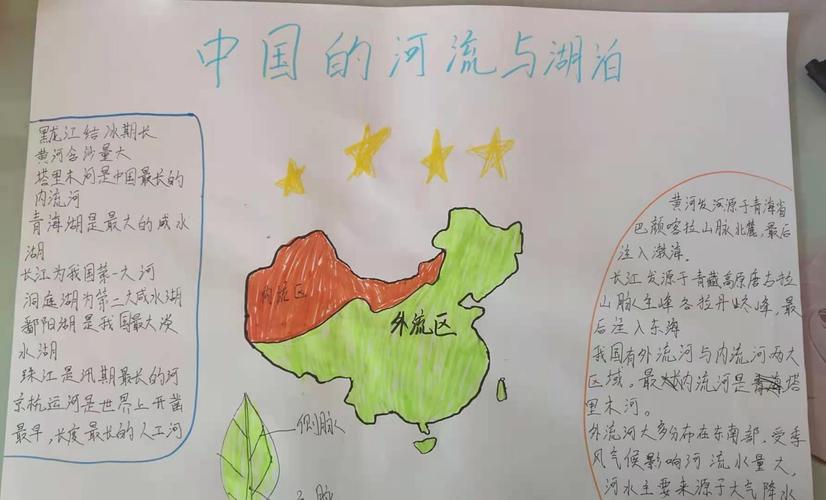 中国的河流与湖泊
黑龙江结冰期长
黄河含沙量大
塔里木河是中国最长的
内流河
青海湖是最大的咸水
湖
长江为我国第一大河
洞庭湖为第二大咸水湖
鄱阳湖是我国最大淡
水湖
珠江是汛期最长的河
京杭运河是世界上开凿
最早,长度最长的人工河
内流区
外流区
侧脉
黄河发河源于青海省
巴颜喀拉山脉北麓,最后
注入渤海。
长江发源于青藏高原唐古拉
山脉主峰各拉丹冬峰,最
后注入东海
我国有外流河与内流河两大
区域。最大内流河是塔
里木河。
外流河大多分布在东南部,受季
风气候影响河流水量大,
河水主要来源于大气降水